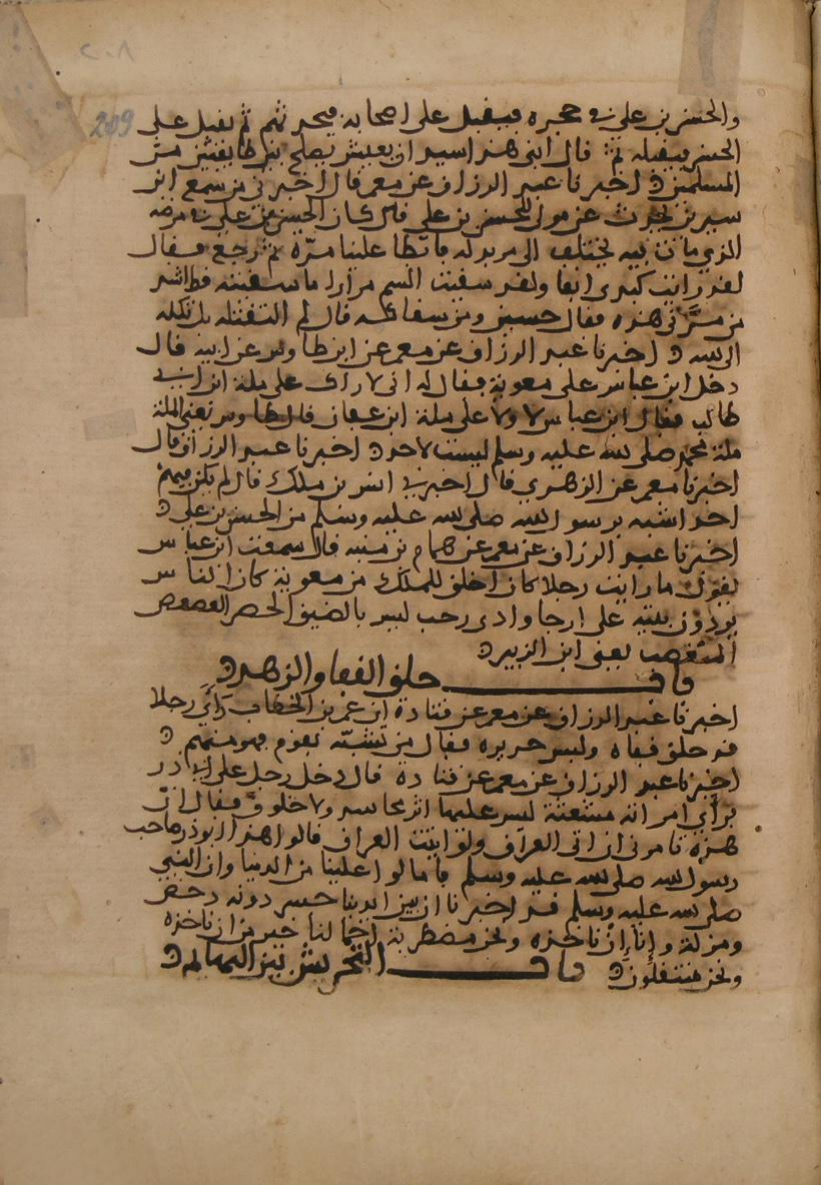 والحسن بن علي في حجره فيقبل على اصحابه فيحدثهم ثم يقبل على
الحسن فيقبله ثم قال ابني هذا سيد ان يعيش يصلح بين طايفتين من
المسلمين اخبرنا عبد الرزاق عن معمر قال اخبرني من سمع ابن
سيرين يحدث عن مولى للحسن بن علي كان الحسن بن علي في مرضه
الذي مات فيه يختلف الى مربد له فابطا علينا مرة ثم رجع فقال
لقد رايت كبدي انفا ولقد سقيت السم مرارا ما سقيته قط اشد
من مرتي هذه فقال حسين ومن سقاكه قال لم التقتله بل نكله
الى الله اخبرنا عبد الرزاق عن معمر عن ابن طاوس عن ابيه قال
دخل ابن عباس على معوية فقال له اني لا راك على ملة ابن ابي
طالب فقال ابن عباس لا ولا على ملة ابن عفان قال طاوس يعني الملة
ملة محمد صلى الله عليه وسلم ليست لاحد اخبرنا عبد الرزاق قال
اخبرنا معمر عن الزهري قال اخبرني انس بن ملك قال لم يكن فيهم
احد اشبه برسول الله صلى الله عليه وسلم من الحسن بن علي
اخبرنا عبد الرزاق عن معمر عن همام بن منبه قال سمعت ابن عباس
يقول ما رايت رجلا كان اخلق للملك من معوية كان الناس
يردون منه على ارجا وادي رحب ليس بالضيق الحصر العصعص
المتغصب يعني ابن الزبير
باب حلق القفا والزهد
اخبرنا عبد الرزاق عن معمر عن قتادة ان عمر بن الخطاب راي رجلا
قد حلق قفاه ولبس حريره فقال من تشبه بقوم فهو منهم
اخبرنا عبد الرزاق عن معمر عن قتادة قال دخل رجل على ابي ذر
فراي امراته مشعثة ليس عليها اثر مجاسد ولا خلوق فقال ان
هذه تامرني ان اتي العراق ولو اتيت العراق قالوا هذا ابو ذر صاحب
رسول الله صلى الله عليه وسلم فامالوا علينا من الدنيا وان النبي
صلى الله عليه وسلم قد اخبرنا ان بين ايدينا جسر دونه دحض
ومزلة وإنا إن ناخذه ونحن مضطربة احمالنا خير من ان ناخذه
ونحن منتقلون باب التحريش بين البهائم
209